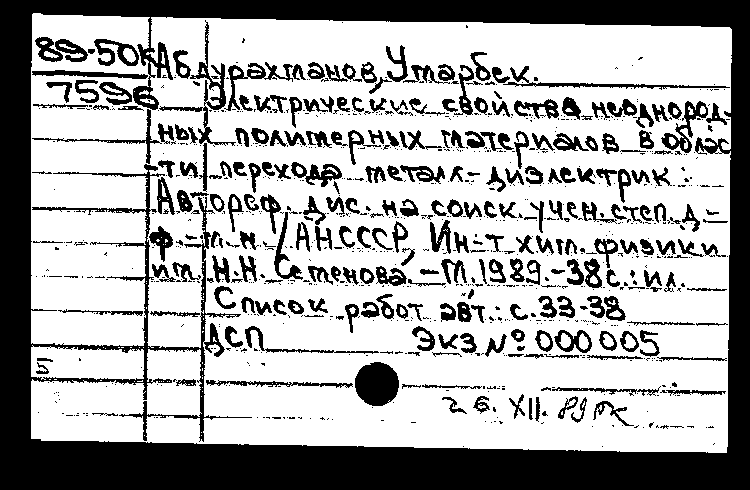 89-50к Абдурахманов, Умарбек.
7596 Электрические свойства неоднород-
ных полимерных материалов в облас
-ти перехода металл-диэлектрик :
Автореф. дис. на соиск. учен. степ. д-
ф.-м. н. /АНСССР, Ин-т хим. физики
им. Н.Н. Семенова. -М. 1989.-38с.: ил.
Список работ авт.: с.33-38
ДСП Экз № 000005
5
26. XII. 89